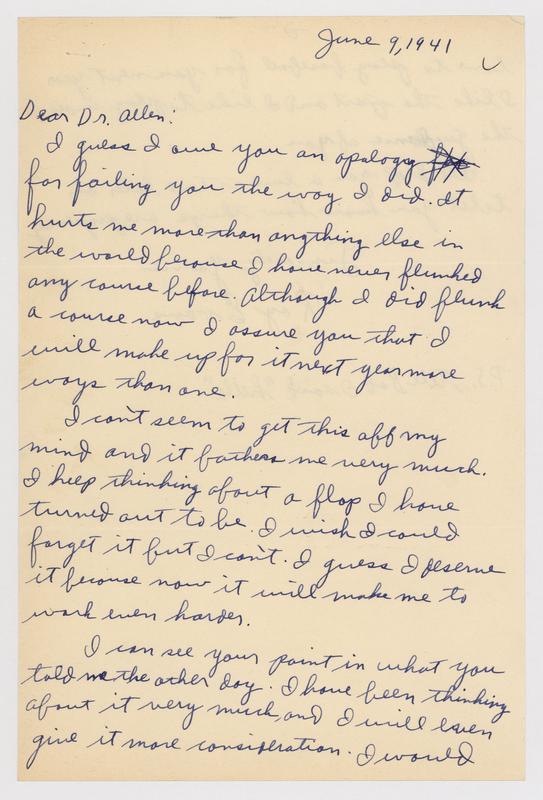 June 9, 1941
Dear Dr. Allen:
I guess I owe you an apology
for failing you the way I did. It
hurts me more than anything else in
the world because I have never flunked
any course before. Although I did flunk
a course now I assure you that I
will make up for it next year more
ways than one.
I can't seem to get this off my
mind and it bothers me very much.
I keep thinking about a flop I have
turned out to be. I wish I could
forget it but I can't. I guess I deserve
it because now it will make me to
work even harder.
I can see your point in what you
told me the other day. I have been thinking
about it very much and I will even
give it more consideration. I would